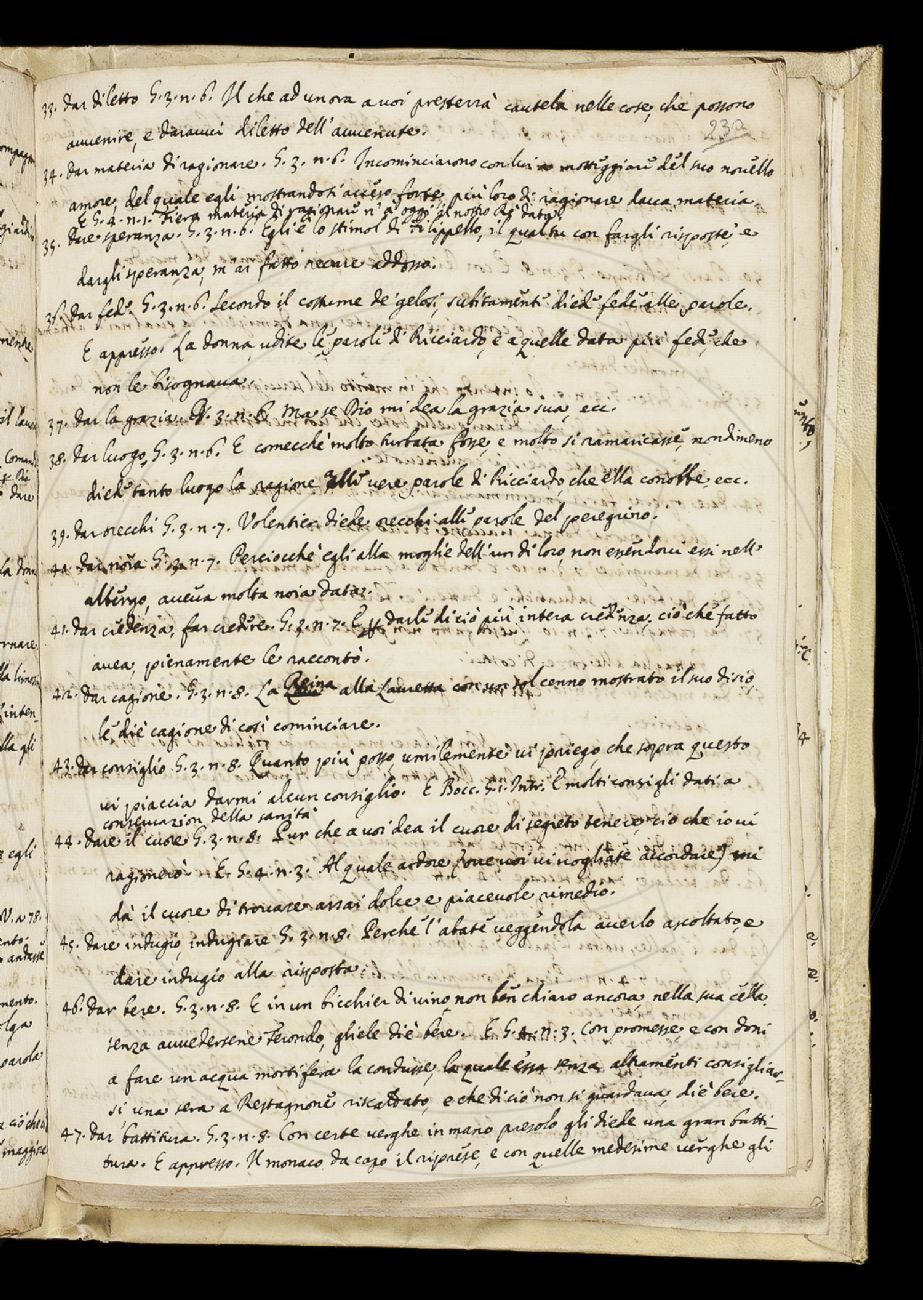 33. Dar diletto G. 3. n. 6. Il che ad un'ora a voi presterrà cautela nelle cose, che possono
232
avvenire, e daravvi diletto dell'avvenute.
34. Dar materia di ragionare. G. 3. n. 6. Incominciarono con lui a motteggiare del suo novello
amore, del quale egli mostrandosi acceso forte, più loro di ragionare dava materia.
E G. 4. n. 1. Fiera materia di ragionare n'à oggi il nostro Re data.
35. Dare speranza. G. 3. n. 6. Egli è lo stimol di Filippello, il qual tu con fargli risposte, e
dargli speranza, m'ài fatto recare addosso.
36. Dar fede. G. 3. n. 6. Secondo il costume de' gelosi, subitamente diede fede alle parole.
E appresso. La donna, udite le parole di Ricciardo, e a quelle data più fede, che
non le bisognava.
37. Dar la grazia. G. 3. n. 6. Ma se Dio mi dea la grazia sua, ecc.
38. Dar luogo, G. 3. n. 6. E comecchè molto turbata fosse, e molto si ramaricasse, nondimeno
diede tanto luogo la ragione alle vere parole di Ricciardo, che ella conobbe ecc.
39. Dar orecchi G. 3. n. 7. Volentier diede orecchi alle parole del peregrino.
40. Dar noia G. 3. n. 7. Perciocchè egli alla moglie dell'un di loro, non essendovi essi nell'
albergo, aveva molta noia data.
41. Dar credenza, far credere. G. 3. n. 7. E per darle di ciò più intera credenza, ciò che fatto
avea, pienamente le raccontò.
42. Dar cagione. G. 3. n. 8. La Reina alla Lauretta con un sol cenno mostrato il suo disio,
le diè cagione di così cominciare.
43. Dar consiglio G. 3. n. 8. Quanto più posso, umilemente vi priego, che sopra questo
vi piaccia darmi alcun consiglio. E Bocc. G. 1. Intr. E molti consigli dati a
conservazion della sanità
44. Dare il cuore G. 3. n. 8. Pur che a voi dea il cuore di segreto tenere ciò che io vi
ragionerò. E G. 4. n. 3. Al quale ardore (ove voi vi vogliate accordare) mi
dà il cuore di trovare assai dolce e piacevole rimedio.
45. Dare indugio, indugiare G. 3. n. 8. Perchè l'abate veggendola averlo ascoltato, e
dare indugio alla risposta.
46. Dar bere. G. 3. n. 8. E in un bicchier di vino non ben chiaro ancora nella sua cella,
senza avvedersene Ferondo, gliele diè bere. E G. 4. n. 3. Con promesse e con doni
a fare un'acqua mortifera la condusse, la quale essa senza altramenti consigliar-
si, una sera a Restagnone riscaldato, e che di ciò non si guardava, diè bere.
47. Dar battitura. G. 3. n. 8. Con certe verghe in mano presolo gli diede una gran batti-
tura. E appresso. Il monaco da capo il riprese, e con quelle medesime verghe gli